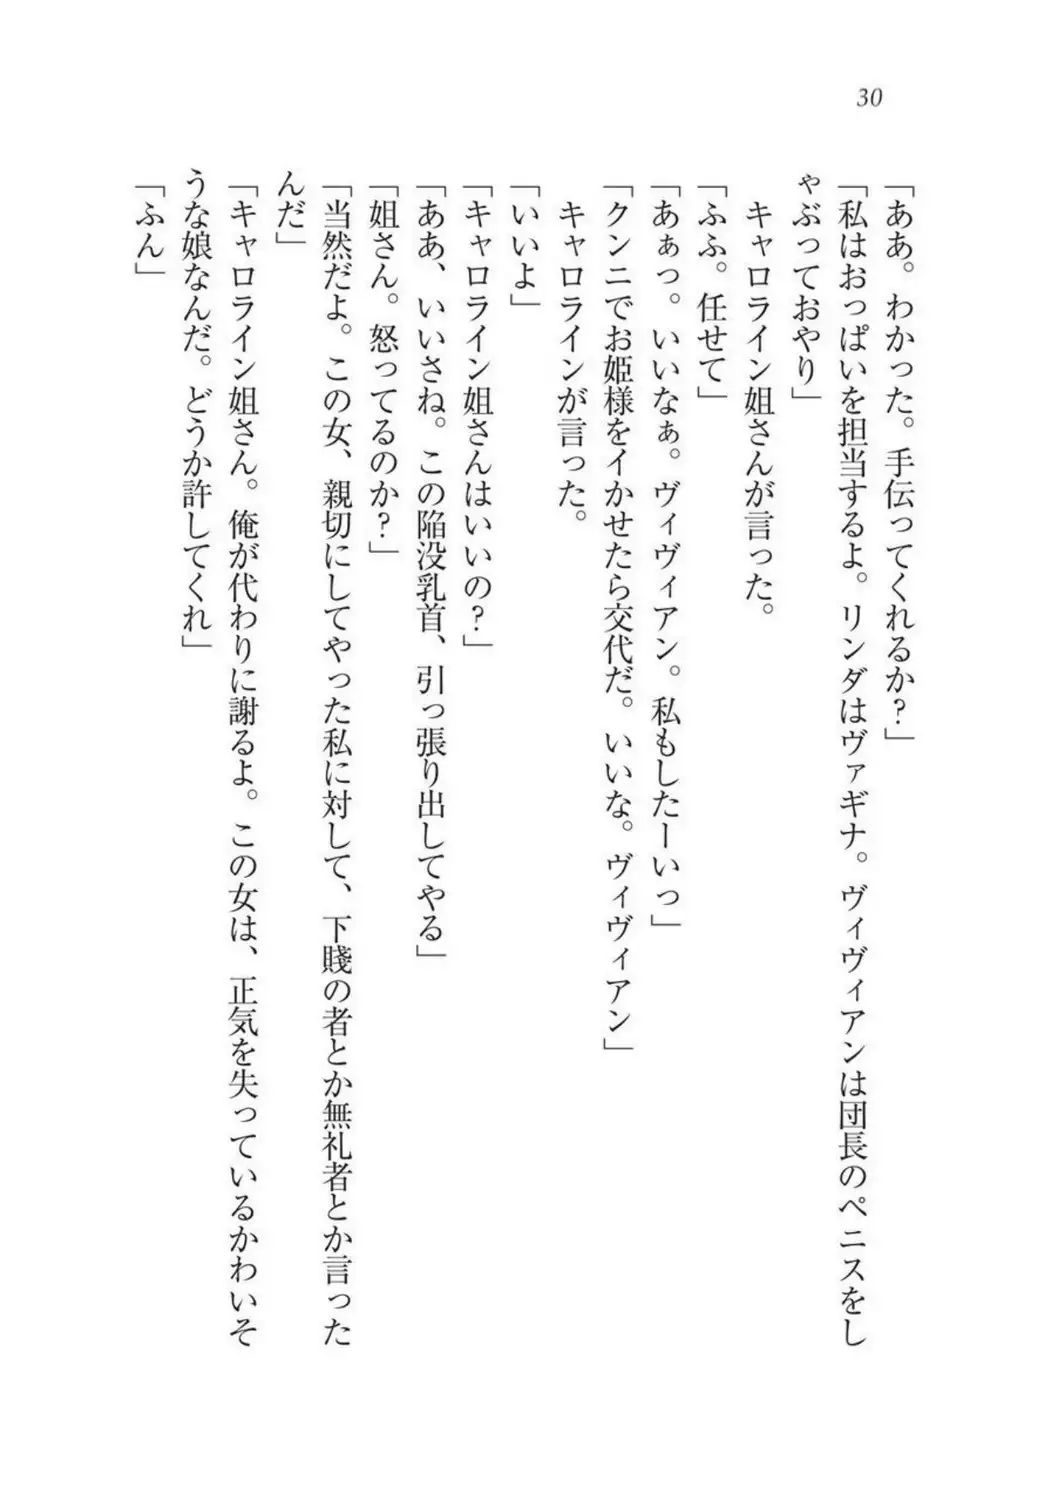 30
「ああ。わかった。手伝ってくれるか?」
「私はおっぱいを担当するよ。リンダはヴァギナ。ヴィヴィアンは団長のペニスをし
ゃぶっておやり」
　キャロライン姐さんが言った。
「ふふ。任せて」
「あぁっ。いいなぁ。ヴィヴィアン。私もしたーいっ」
「クンニでお姫様をイかせたら交代だ。いいな。ヴィヴィアン」
　キャロラインが言った。
「いいよ」
「キャロライン姐さんはいいの?」
「ああ、いいさね。この陥没乳首、引っ張り出してやる」
「姐さん。怒ってるのか?」
「当然だよ。この女、親切にしてやった私に対して、下賤の者とか無礼者とか言った
んだ」
「キャロライン姐さん。俺が代わりに謝るよ。この女は、正気を失っているかわいそ
うな娘なんだ。どうか許してくれ」
「ふん」